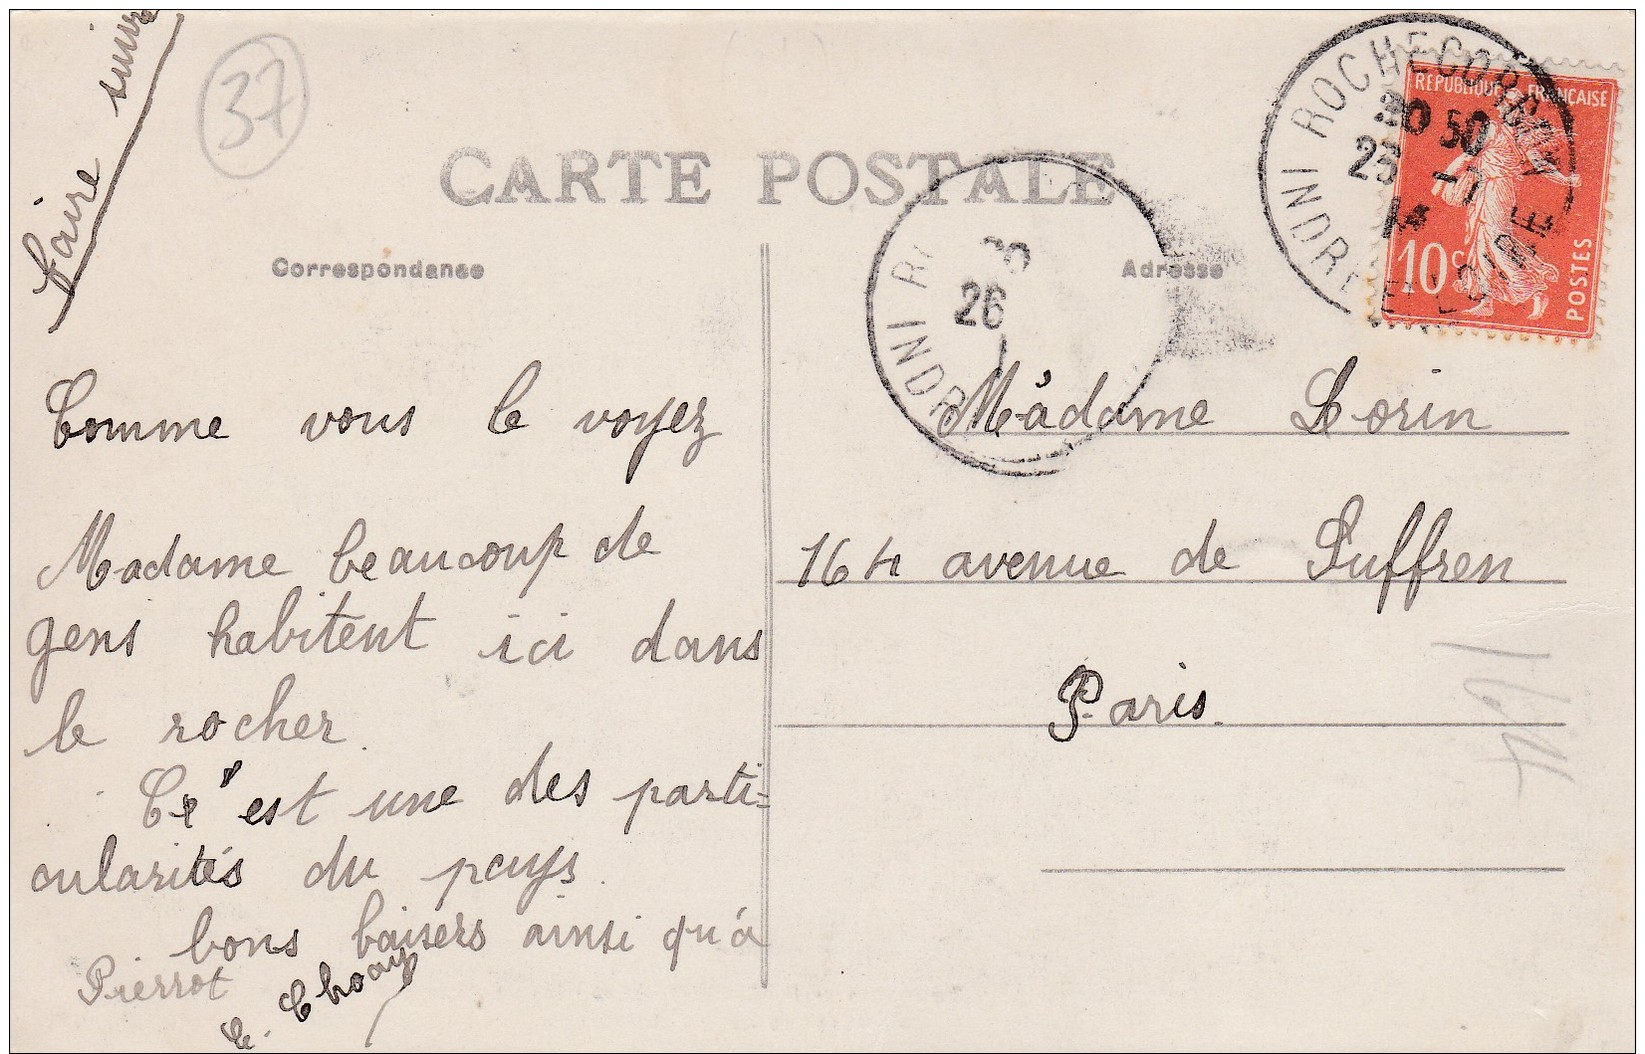 Faire suivre
37
CARTE POSTALE
Correspondance
Adresse
ROCHECORBON
INDRE ET LOIRE
20 50
26 -7
14
REPUBLIQUE FRANÇAISE
10c
POSTES
20
26
INDR
Comme vous le voyez
Madame beaucoup de
gens habitent ici dans
le rocher.
Ce'est une des parti-
cularités du pays.
bons baisers ainsi qu'à
Pierrot
Madame Lorin
164 avenue de Suffren
Paris.